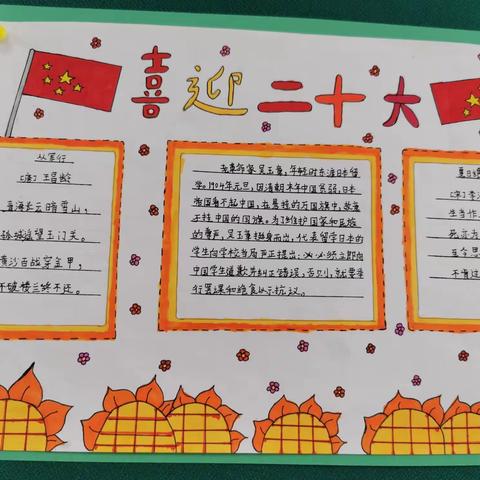 喜迎二十大
从军行
(唐)王昌龄
青海长云暗雪山,
孤城遥望玉门关。
黄沙百战穿金甲,
不破楼兰终不还。
吴玉章,年轻时东渡日本留
学。1904年元旦,因清朝末年中国贫弱,日本
帝国看不起中国,在悬挂的万国旗中,故意
不挂中国的国旗。为了维护国家和民族
的尊严,吴玉章挺身而出,代表留学日本的
学生向学校当局严正提出:必须立即向
中国学生道歉并纠正错误,否则,就要举
行罢课和绝食以示抗议。
夏日绝
(宋)李
生当作
死亦为
至今思
不肯过